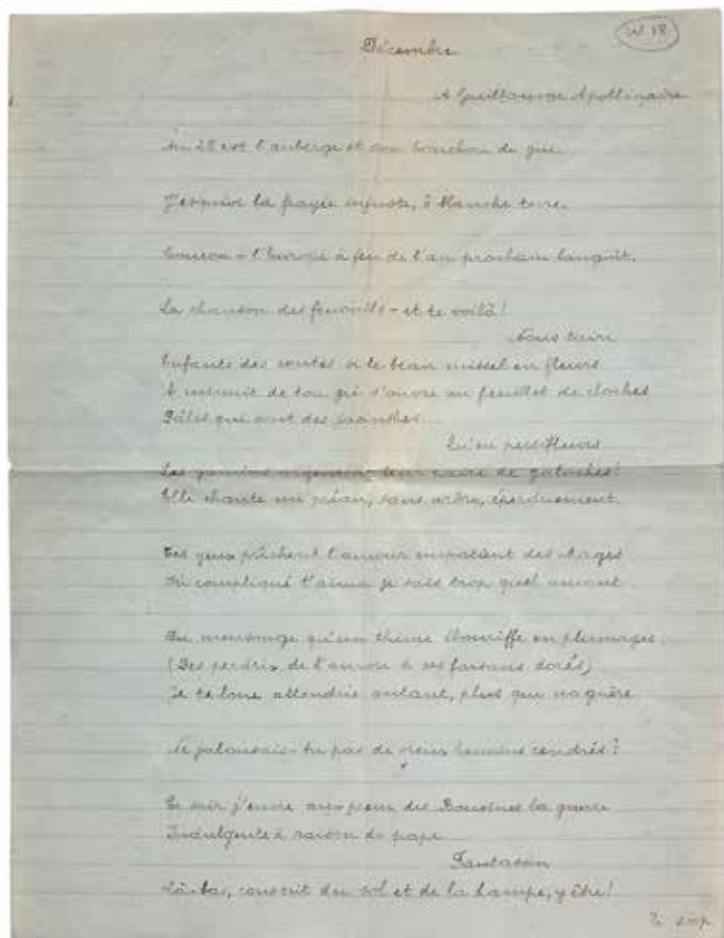 W 18
Décembre
A Guillaume Apollinaire
Au 28 est l'auberge et son bouchon de gui
J'espère la frayée, ô blanche terre.
l'Europe à feu de l'an prochain languit.
La chanson des fenouils - et te voilà!
Nous taire
Enfants des contes si le beau missel en fleurs
A minuit de ton gui s'ouvre au feuillet de cloches
Pâles qui sont des jacinthes...
Qu'en persifleurs
Les gamins leur paire de galoches!
Elle chante un péan, sans ordre, éperdument.
Tes yeux prêchent l'amour impatient des otages
Au compliqué t'aima je sais trop quel amant
Du mensonge qu'un thème ébouriffe en plumages.
(Des perdrix de l'aurore à ses faisans dorés)
Je te loue attendrie autant, plus que naguère
Ne jalousais-tu pas de vieux cendrés?
Ce soir j'envie avec des la guerre
Indulgente à raison de pape
Fantassin
Là-bas, conscrit du sol et de la hampe, y être!